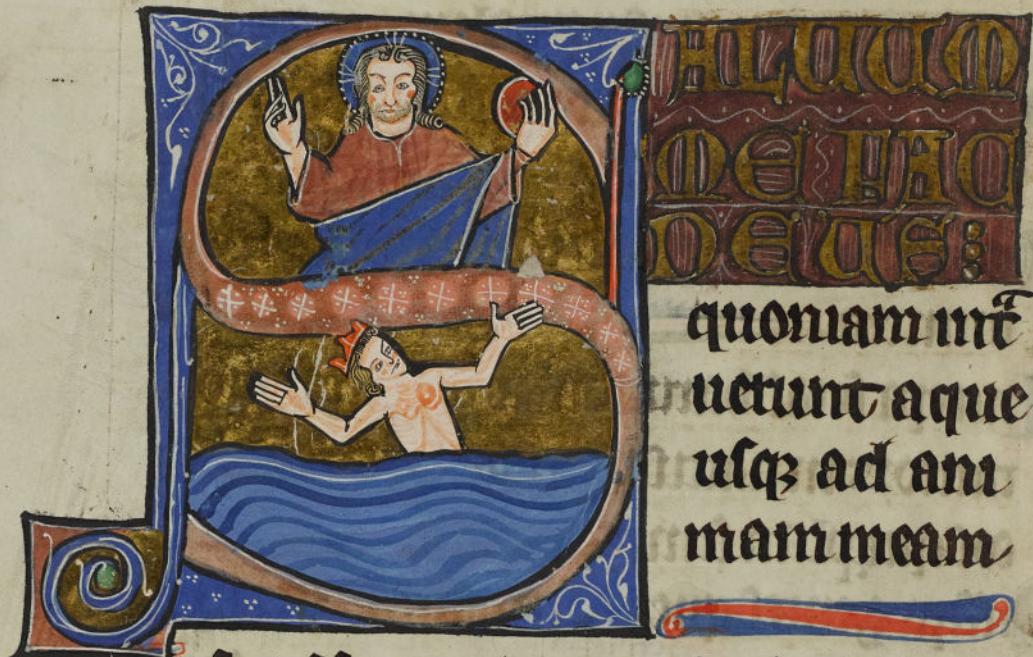 SALUUM
ME FAC
DEUS:
quoniam intᷓ
uerunt aque
usqꝫ ad ani
mam meam